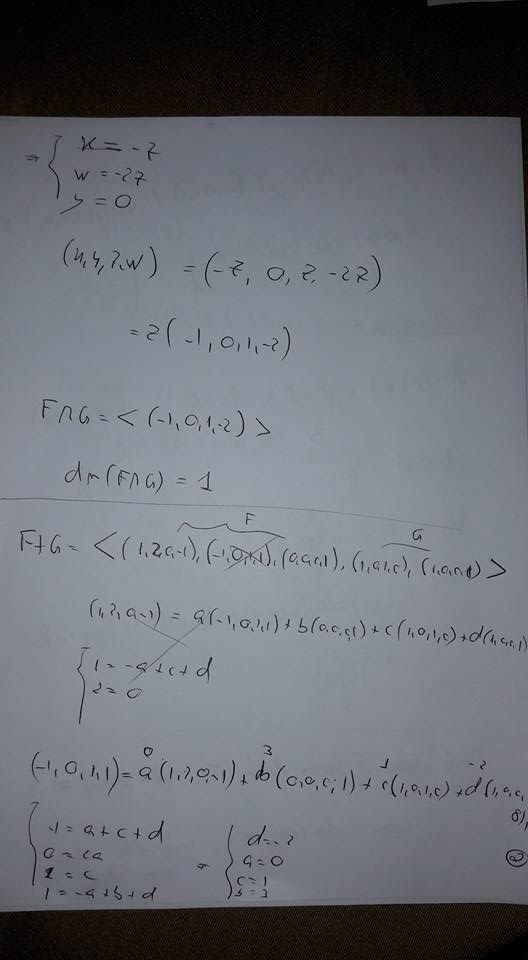 ⇒ { x = -z
w = -2z
y = 0
(x, y, z, w) = (-z, 0, z, -2z)
= z(-1, 0, 1, -2)
F∩G = < (-1, 0, 1, -2) >
dim(F∩G) = 1
F G
F+G = < (1, 2, 0, -1), (-1, 0, 1, 1), (0, 0, 0, 1), (1, 0, 1, 0), (1, 0, 0, 1) >
(1, 2, 0, -1) = a(-1, 0, 1, 1) + b(0, 0, 0, 1) + c(1, 0, 1, 0) + d(1, 0, 0, 1)
{ 1 = -a + c + d
2 = 0
0 3 1 -2
(-1, 0, 1, 1) = a(1, 2, 0, -1) + b(0, 0, 0, 1) + c(1, 0, 1, 0) + d(1, 0, 0,
{ -1 = a + c + d ⇒ { d = -2
0 = 2a a = 0
1 = c c = 1
1 = -a + b + d b = 3
②